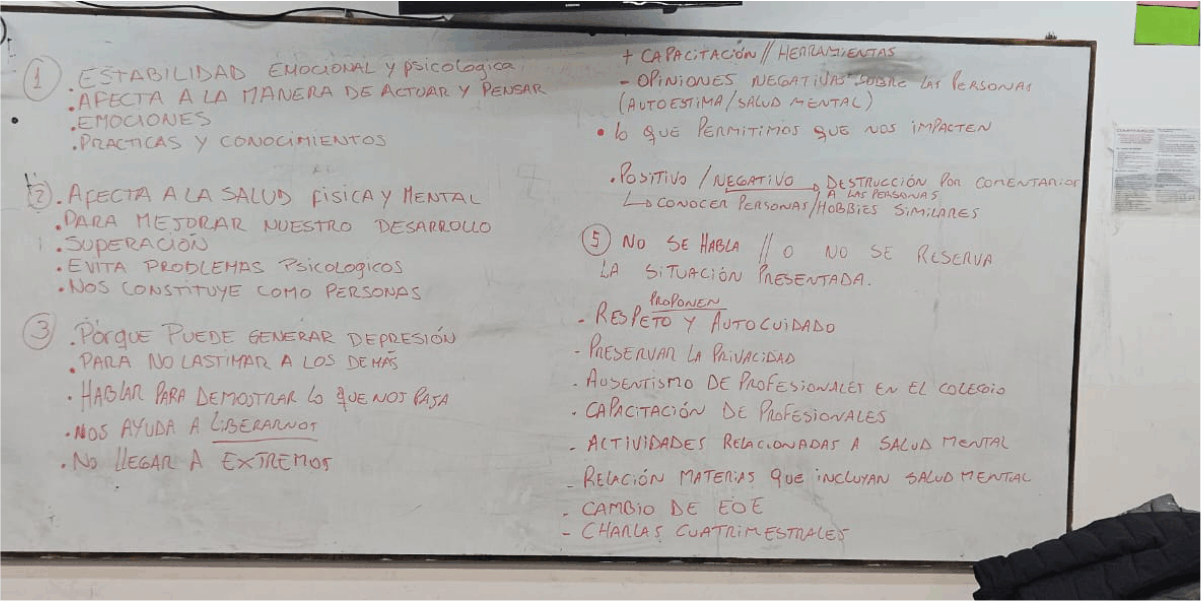 1 . ESTABILIDAD EMOCIONAL y psicologica
. AFECTA A LA MANERA DE ACTUAR Y PENSAR
. EMOCIONES
. PRACTICAS Y CONOCIMIENTOS
2 . AFECTA A LA SALUD fisica y MENTAL
. PARA MEJORAR NUESTRO DESARROLLO
. SUPERACIÓN
. EVITA PROBLEMAS Psicologicos
. NOS CONSTITUYE COMO PERSONAS
3 . Porque PUEDE GENERAR DEPRESIÓN
. PARA NO LASTIMAR A LOS DEMÁS
. HABLAR PARA DEMOSTRAR LO QUE NOS PASA
. NOS AYUDA A LIBERARNOS
. NO LLEGAR A EXTREMOS
+ CAPACITACIÓN // HERRAMIENTAS
- OPINIONES NEGATIVAS SOBRE LAS PERSONAS
(AUTOESTIMA/SALUD MENTAL)
• LO QUE PERMITIMOS QUE NOS IMPACTEN
. POSITIVO / NEGATIVO → DESTRUCCIÓN POR COMENTARIOS
A LAS PERSONAS
↳ CONOCER PERSONAS/HOBBIES SIMILARES
5 NO SE HABLA // O NO SE RESERVA
LA SITUACIÓN PRESENTADA.
PROPONEN
- RESPETO Y AUTOCUIDADO
- PRESERVAR LA PRIVACIDAD
- AUSENTISMO DE PROFESIONALES EN EL COLEGIO
- CAPACITACIÓN DE PROFESIONALES
- ACTIVIDADES RELACIONADAS A SALUD MENTAL
- RELACIÓN MATERIAS QUE INCLUYAN SALUD MENTAL
- CAMBIO DE EOE
- CHARLAS CUATRIMESTRALES